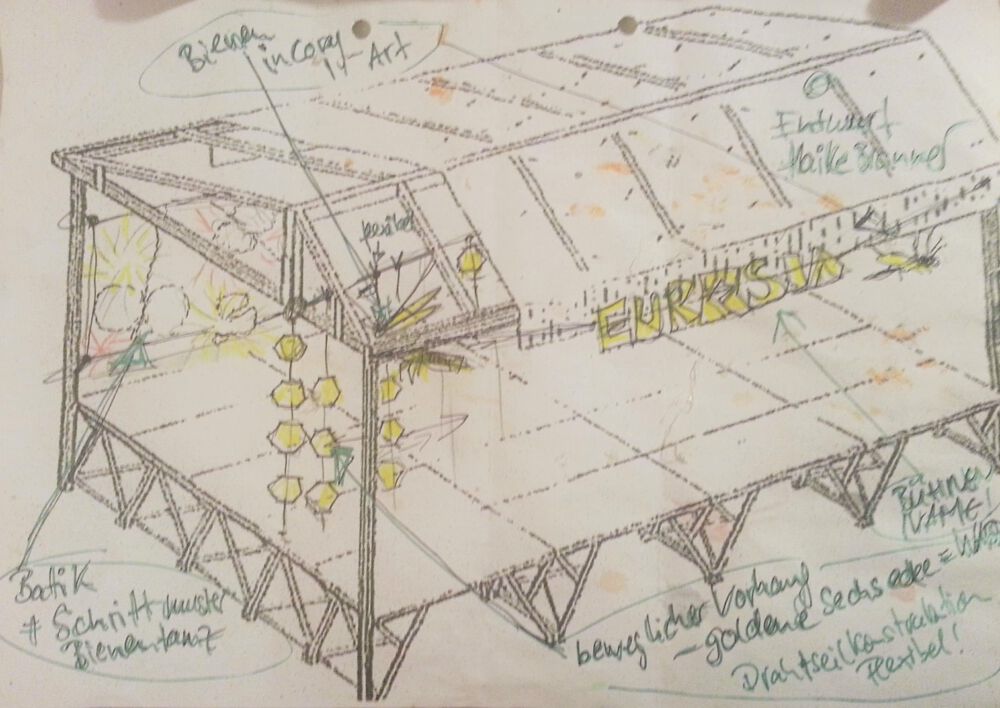 Bienen
in Cory
Art
Entwurf
flexibel
EURASIA
BÜHNEN
NAME!
Batik
# Schriftmuster
Bienentanz
beweglicher Vorhang
- goldene Sechsecke =
Drahtseilkonstruktion
flexibel!